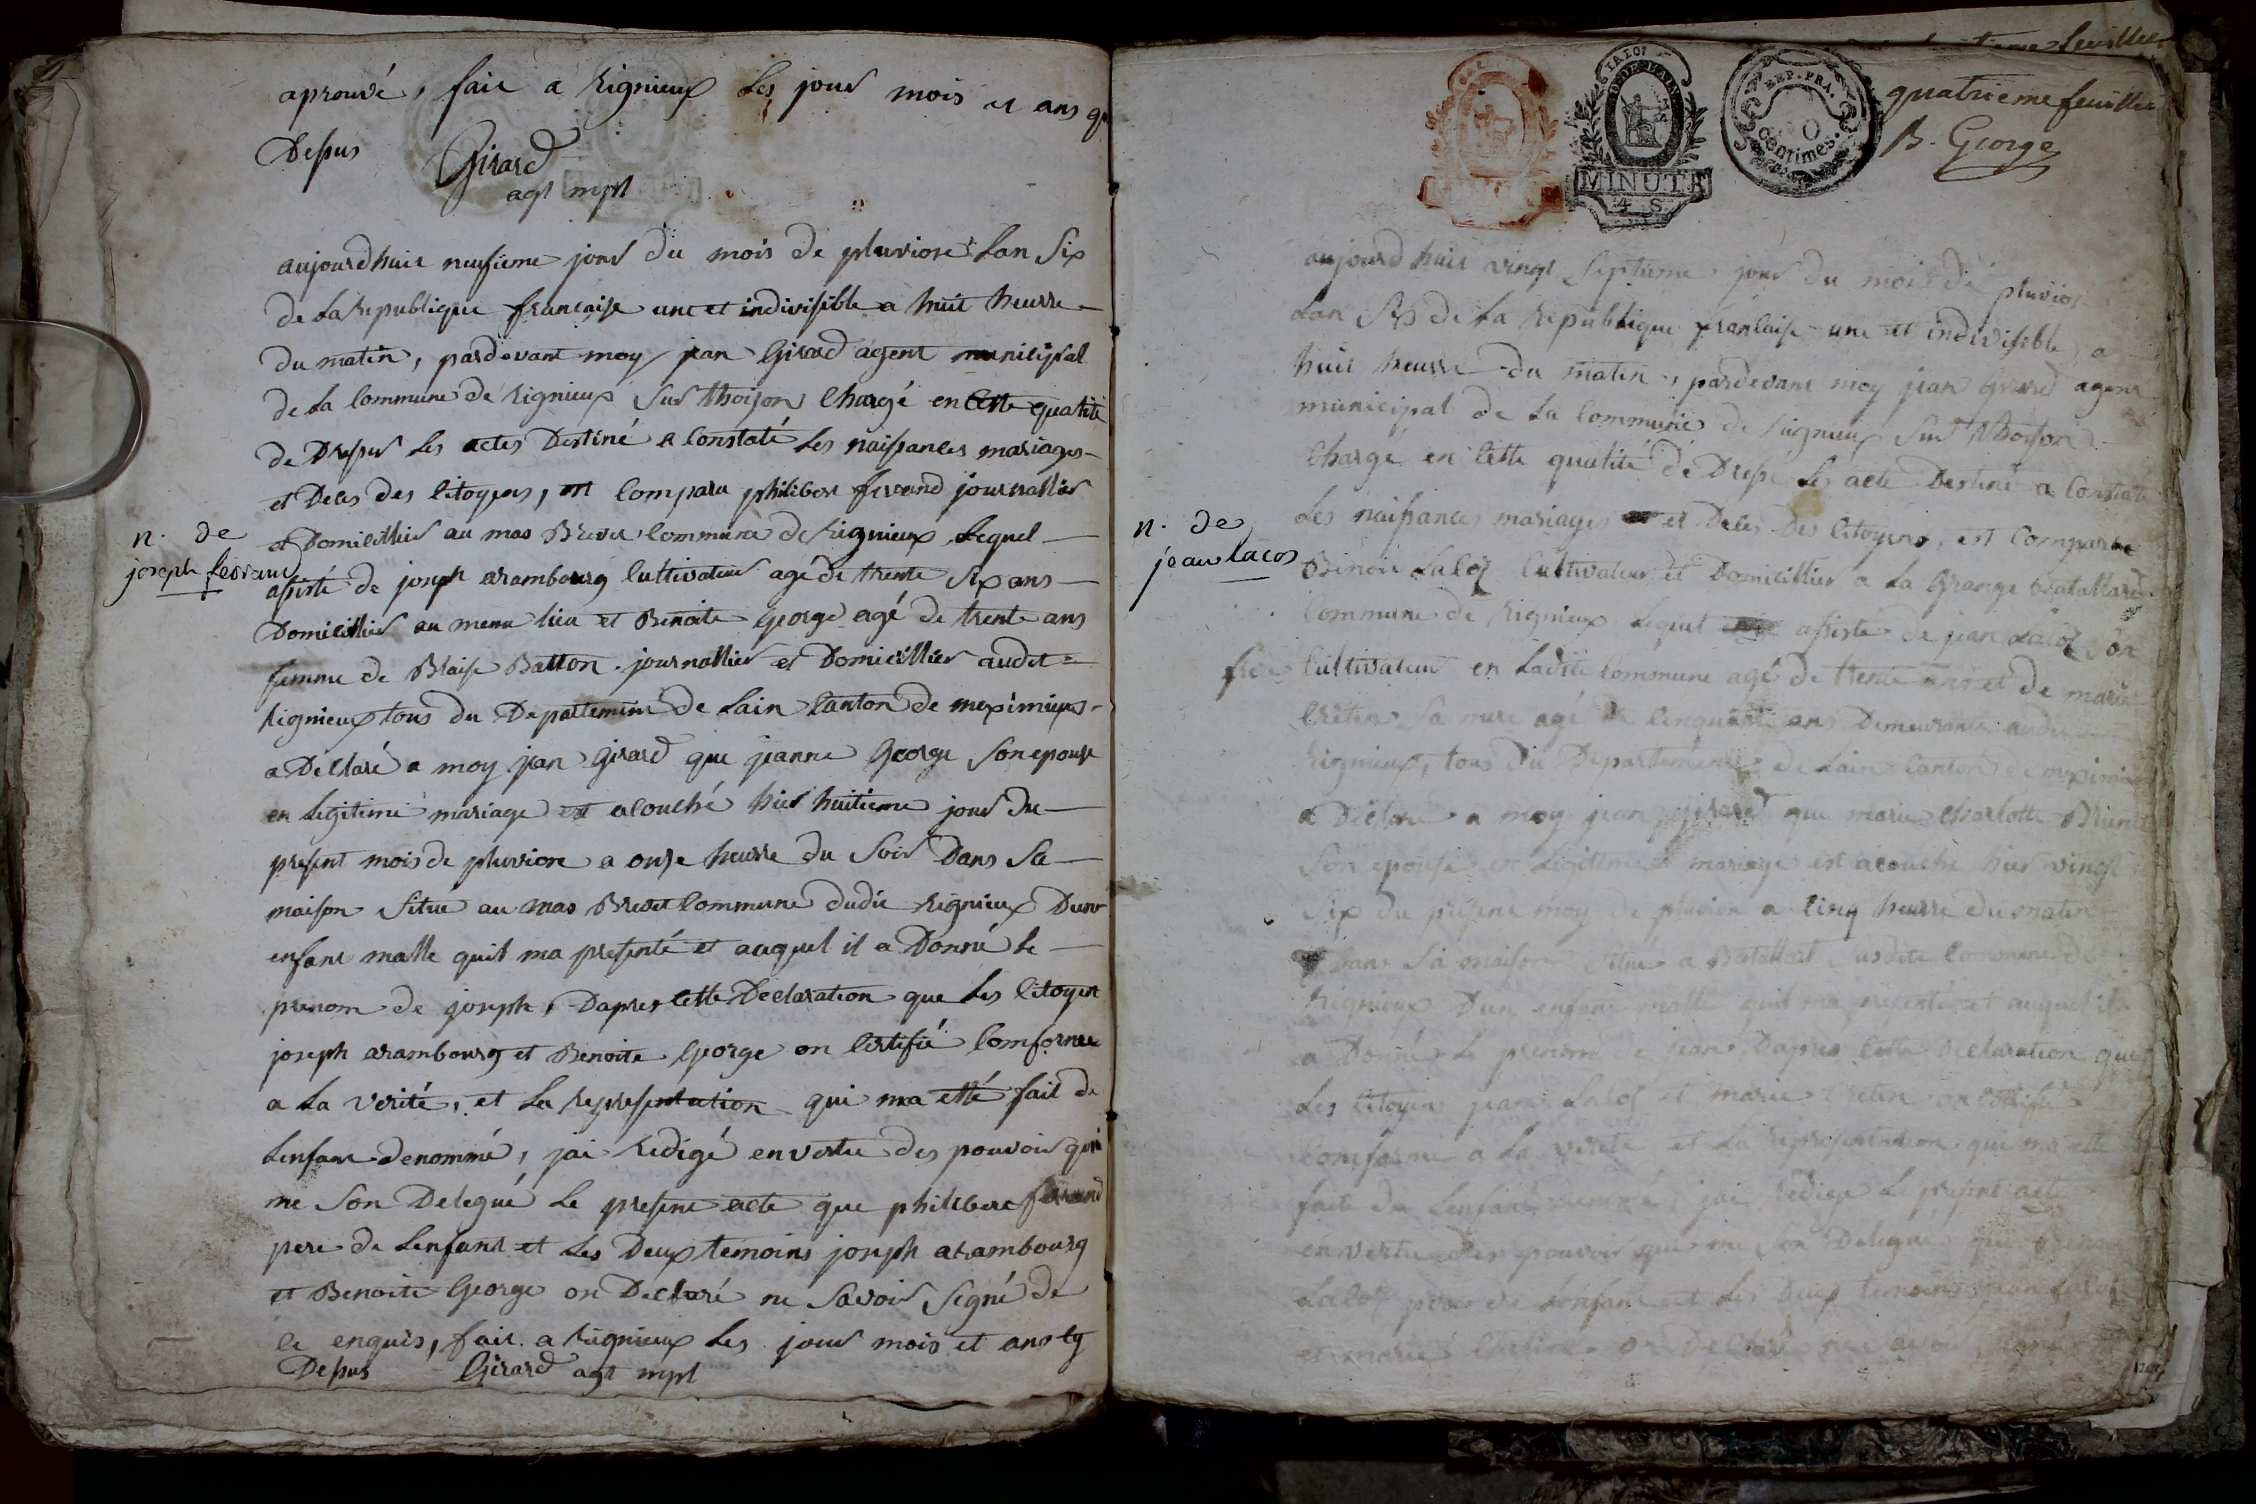 aprouvé, fait a Rignieux Les jour mois et ans q
Depus
Girard
agt mpl
aujourdhuit neufieme jour du mois de pluviose Lan Six
de La republique francaise une et indivisible a huit heurre
du matin, pardevant moy jean Girard agent municipal
de La Commune de Rignieux Sur thoison Chargé en Cette qualité
de Dresser Les actes Destiné a Constaté Les naissances mariages
et Deces des Citoyens, est Comparu philibert ferrand journallier
et Domicillier au mas Brevet Commune de Rignieux Lequel
n. de
joseph ferrand
assisté de joseph arambourg Cultivateur agé de trente Six ans
Domicillier au meme lieu et Benoite George agé de trente ans
femme de Blaise Batton journallier et Domicillier audit
Rignieux tous du Departement de Lain Canton de meximieux
a Declaré a moy jean Girard que jeanne George Son epouse
en Legitime mariage est acouché hier huitieme jour du
present mois de pluviose a onse heurre du Soir Dans Sa
maison Situe au mas Brevet Commune dudit Rignieux Dun
enfant malle quil ma presenté et auquel il a Donné Le
prenom de joseph, Dapres Cette Declaration que Les Citoyens
joseph arambourg et Benoite George on Certifié Comforme
a La verité, et La representation qui ma etté fait de
Lenfant denommé, jai Redigé en vertu des pouvoir qui
me Son Delegué Le present acte que philibert ferrand
pere de Lenfant et Les Deux temoins joseph arambourg
et Benoite George on Declaré ne Savoir Signé de
ce enquis, fait a Rignieux Les jour mois et ans q
Depus Girard agt mpl
LA LOI
MINUTE
4 S
REP. FRA.
50
centimes
quatrieme feuillet
B. George
aujourdhuit vingt Septieme jour du mois de pluvios
Lan Six de La Republique francaise une et indivisible, a
huit heurre du matin, pardevant moy jean Girard agent
municipal de La Commune de Rignieux Sur thoison
Chargé en Cette qualité de Dresse Les acte Destiné a Constaté
Les naissances mariages et Deces Des Citoyens, est Comparu
n. de
jean lacos
Benoit Lalos Cultivateur et Domicillier a La Grange Batallard
Commune de Rignieux Lequel assisté de jean Lalos
Cultivateur en Ladite Commune agé de trente ans et de marie
Cretin Sa mere agé de Cinquante ans Demeurante audit
Rignieux, tous du Departement de Lain Canton de meximie
a Declaré a moy jean girard que marie Charlotte Brunet
Son epouse en Legitime mariage est acouché hier vingt
Six du present moy de pluviose a Cinq heurre du matin
Dans Sa maison Situe a Batallard Susdite Commune de
Rignieux Dun enfant malle quil ma presenté et auquel il
a Donné Le prenom de jean Dapres Cette Declaration que
Les Citoyens jean Lalos et marie Cretin on Certifié
Comforme a La verité et La representation qui ma etté
faite de Lenfant denommé, jai Redigé Le present acte
en vertu des pouvoir qui me Son Delegué que Benoit
Lalos pere de Lenfant et Les Deux temoins jean Lalos
et marie Cretin on Declaré ne Savoir Signé